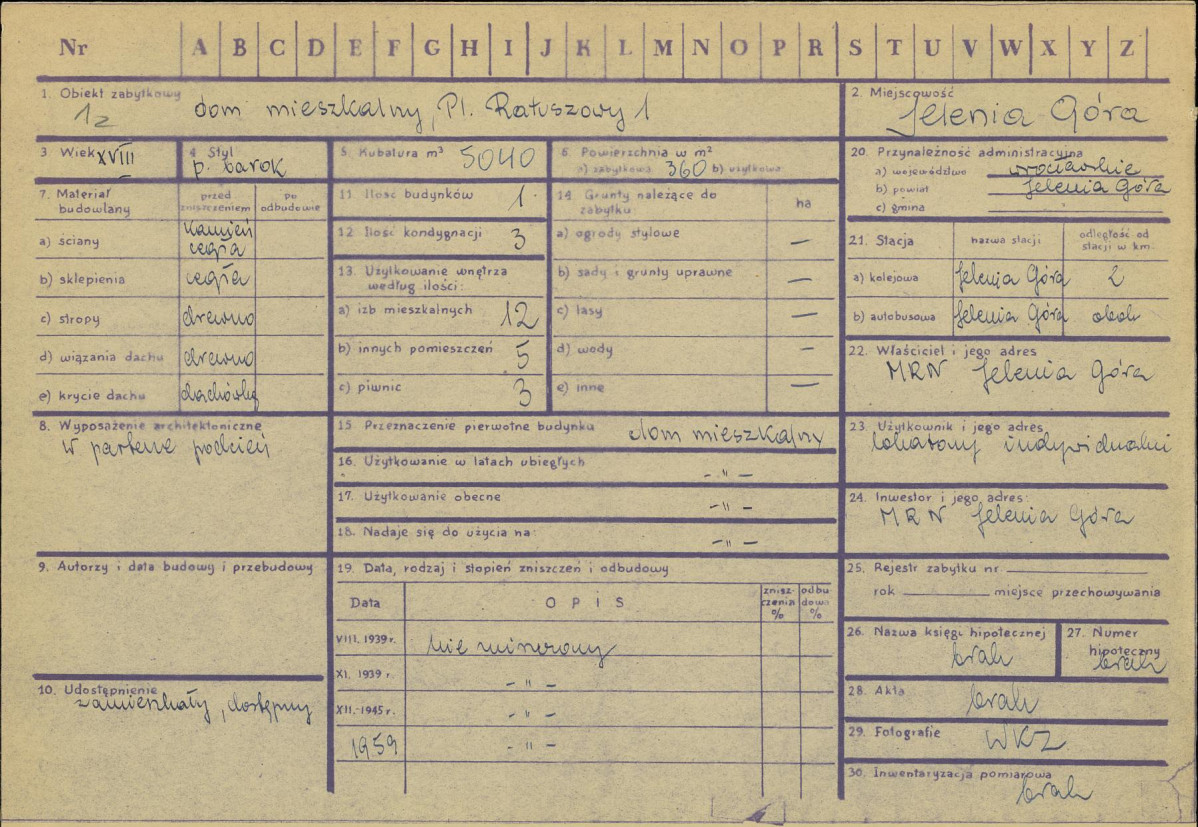 Nr A B C D E F G H I J K L M N O P R S T U V W X Y Z
1. Obiekt zabytkowy
dom mieszkalny, Pl. Ratuszowy 1
2. Miejscowość
Jelenia Góra
3 Wiek XVIII
4 Styl
p. barok
5. Kubatura m³ 5040
6. Powierzchnia w m²
a) zabytkowa 360 b) użytkowa
7. Materiał budowlany
przed zniszczeniem
po odbudowie
a) ściany kamień cegła
b) sklepienia cegła
c) stropy drewno
d) wiązania dachu drewno
e) krycie dachu dachówka
8. Wyposażenie architektoniczne
w parterze podcień
9. Autorzy i data budowy i przebudowy
10. Udostępnienie
zamieszkały, dostępny
11. Ilość budynków 1.
12. Ilość kondygnacji 3
13. Użytkowanie wnętrza
według ilości:
a) izb mieszkalnych 12
b) innych pomieszczeń 5
c) piwnic 3
14. Grunty należące do
zabytku:
ha
a) ogrody stylowe —
b) sady i grunty uprawne —
c) lasy —
d) wody —
e) inne —
15 Przeznaczenie pierwotne budynku dom mieszkalny
16. Użytkowanie w latach ubiegłych - " -
17. Użytkowanie obecne - " -
18. Nadaje się do użycia na: - " -
19. Data, rodzaj i stopień zniszczeń i odbudowy
Data
O P I S
znisz-
czenia
%
odbu
dowa
%
VIII. 1939 r. nie
XI. 1939 r. - " -
XII. 1945 r. - " -
1959 - " -
20. Przynależność administracyjna
a) województwo wrocławskie
b) powiat Jelenia Góra
c) gmina
21. Stacja
nazwa stacji
odległość od
stacji w km.
a) kolejowa Jelenia Góra 2
b) autobusowa Jelenia Góra obok
22. Właściciel i jego adres
MRN Jelenia Góra
23. Użytkownik i jego adres
lokatorzy indywidualni
24. Inwestor i jego adres:
MRN Jelenia Góra
25. Rejestr zabytku nr.
rok miejsce przechowywania
26. Nazwa księgi hipotecznej
brak
27. Numer
hipoteczny
brak
28. Akta brak
29. Fotografie WKZ
30. Inwentaryzacja pomiarowa
brak